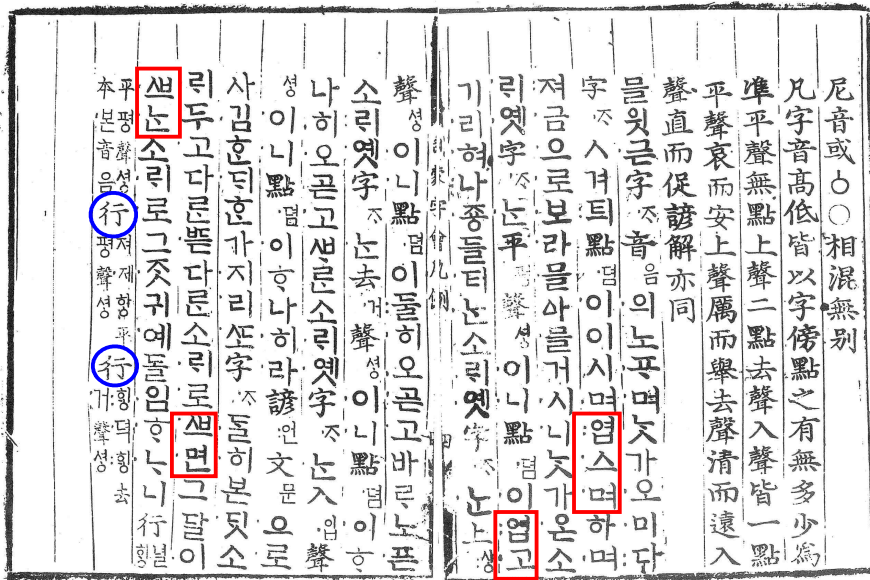 尼音或ㆁㅇ相混無別
凡字音高低皆以字傍點之有無多少爲
準平聲無點上聲二點去聲入聲皆一點
平聲哀而安上聲厲而擧去聲淸而遠入
聲直而促諺解亦同
믈읫근字ᄌᆞ音음의노ᄑᆞ며ᄂᆞᆺ가오미다
字ᄌᆞㅅ겨틔點뎜이이시며업스며하며
져금으로보라믈아믈거시니ᄂᆞᆺ가온소
ᄅᆡ옛字ᄌᆞᄂᆞᆫ平평聲셩이니點뎜이업고
기리혀나죵들티ᄂᆞᆫ소ᄅᆡ옛字ᄌᆞᄂᆞᆫ上샹
訓蒙字會凡例
聲셩이니點뎜이둘히오곧고바ᄅᆞ노픈
소ᄅᆡ옛字ᄌᆞᄂᆞᆫ去거聲셩이니點뎜이ᄒᆞ
나히오곧고ᄲᆞᄅᆞᆫ소ᄅᆡ옛字ᄌᆞᄂᆞᆫ入입聲
셩이니點뎜이ᄒᆞ나히라諺언文문으로
사김ᄒᆞᆫᄃᆡᄒᆞᆫ가지라ᄯᅩ字ᄌᆞᄃᆞᆯ히본딧소
ᄅᆡ두고다ᄅᆞᆫᄠᅳᆮ다ᄅᆞᆫ소ᄅᆡ로ᄡᅳ면그달이
ᄡᅳᄂᆞᆫ소ᄅᆡ로그ᄌᆞᆺ귀예돌임ᄒᆞᄂᆞ니行녈ᄒᆡᆼ
平평聲셩本본音음行져제항平평聲셩行ᄒᆡᆼ뎍ᄒᆡᆼ去거聲셩